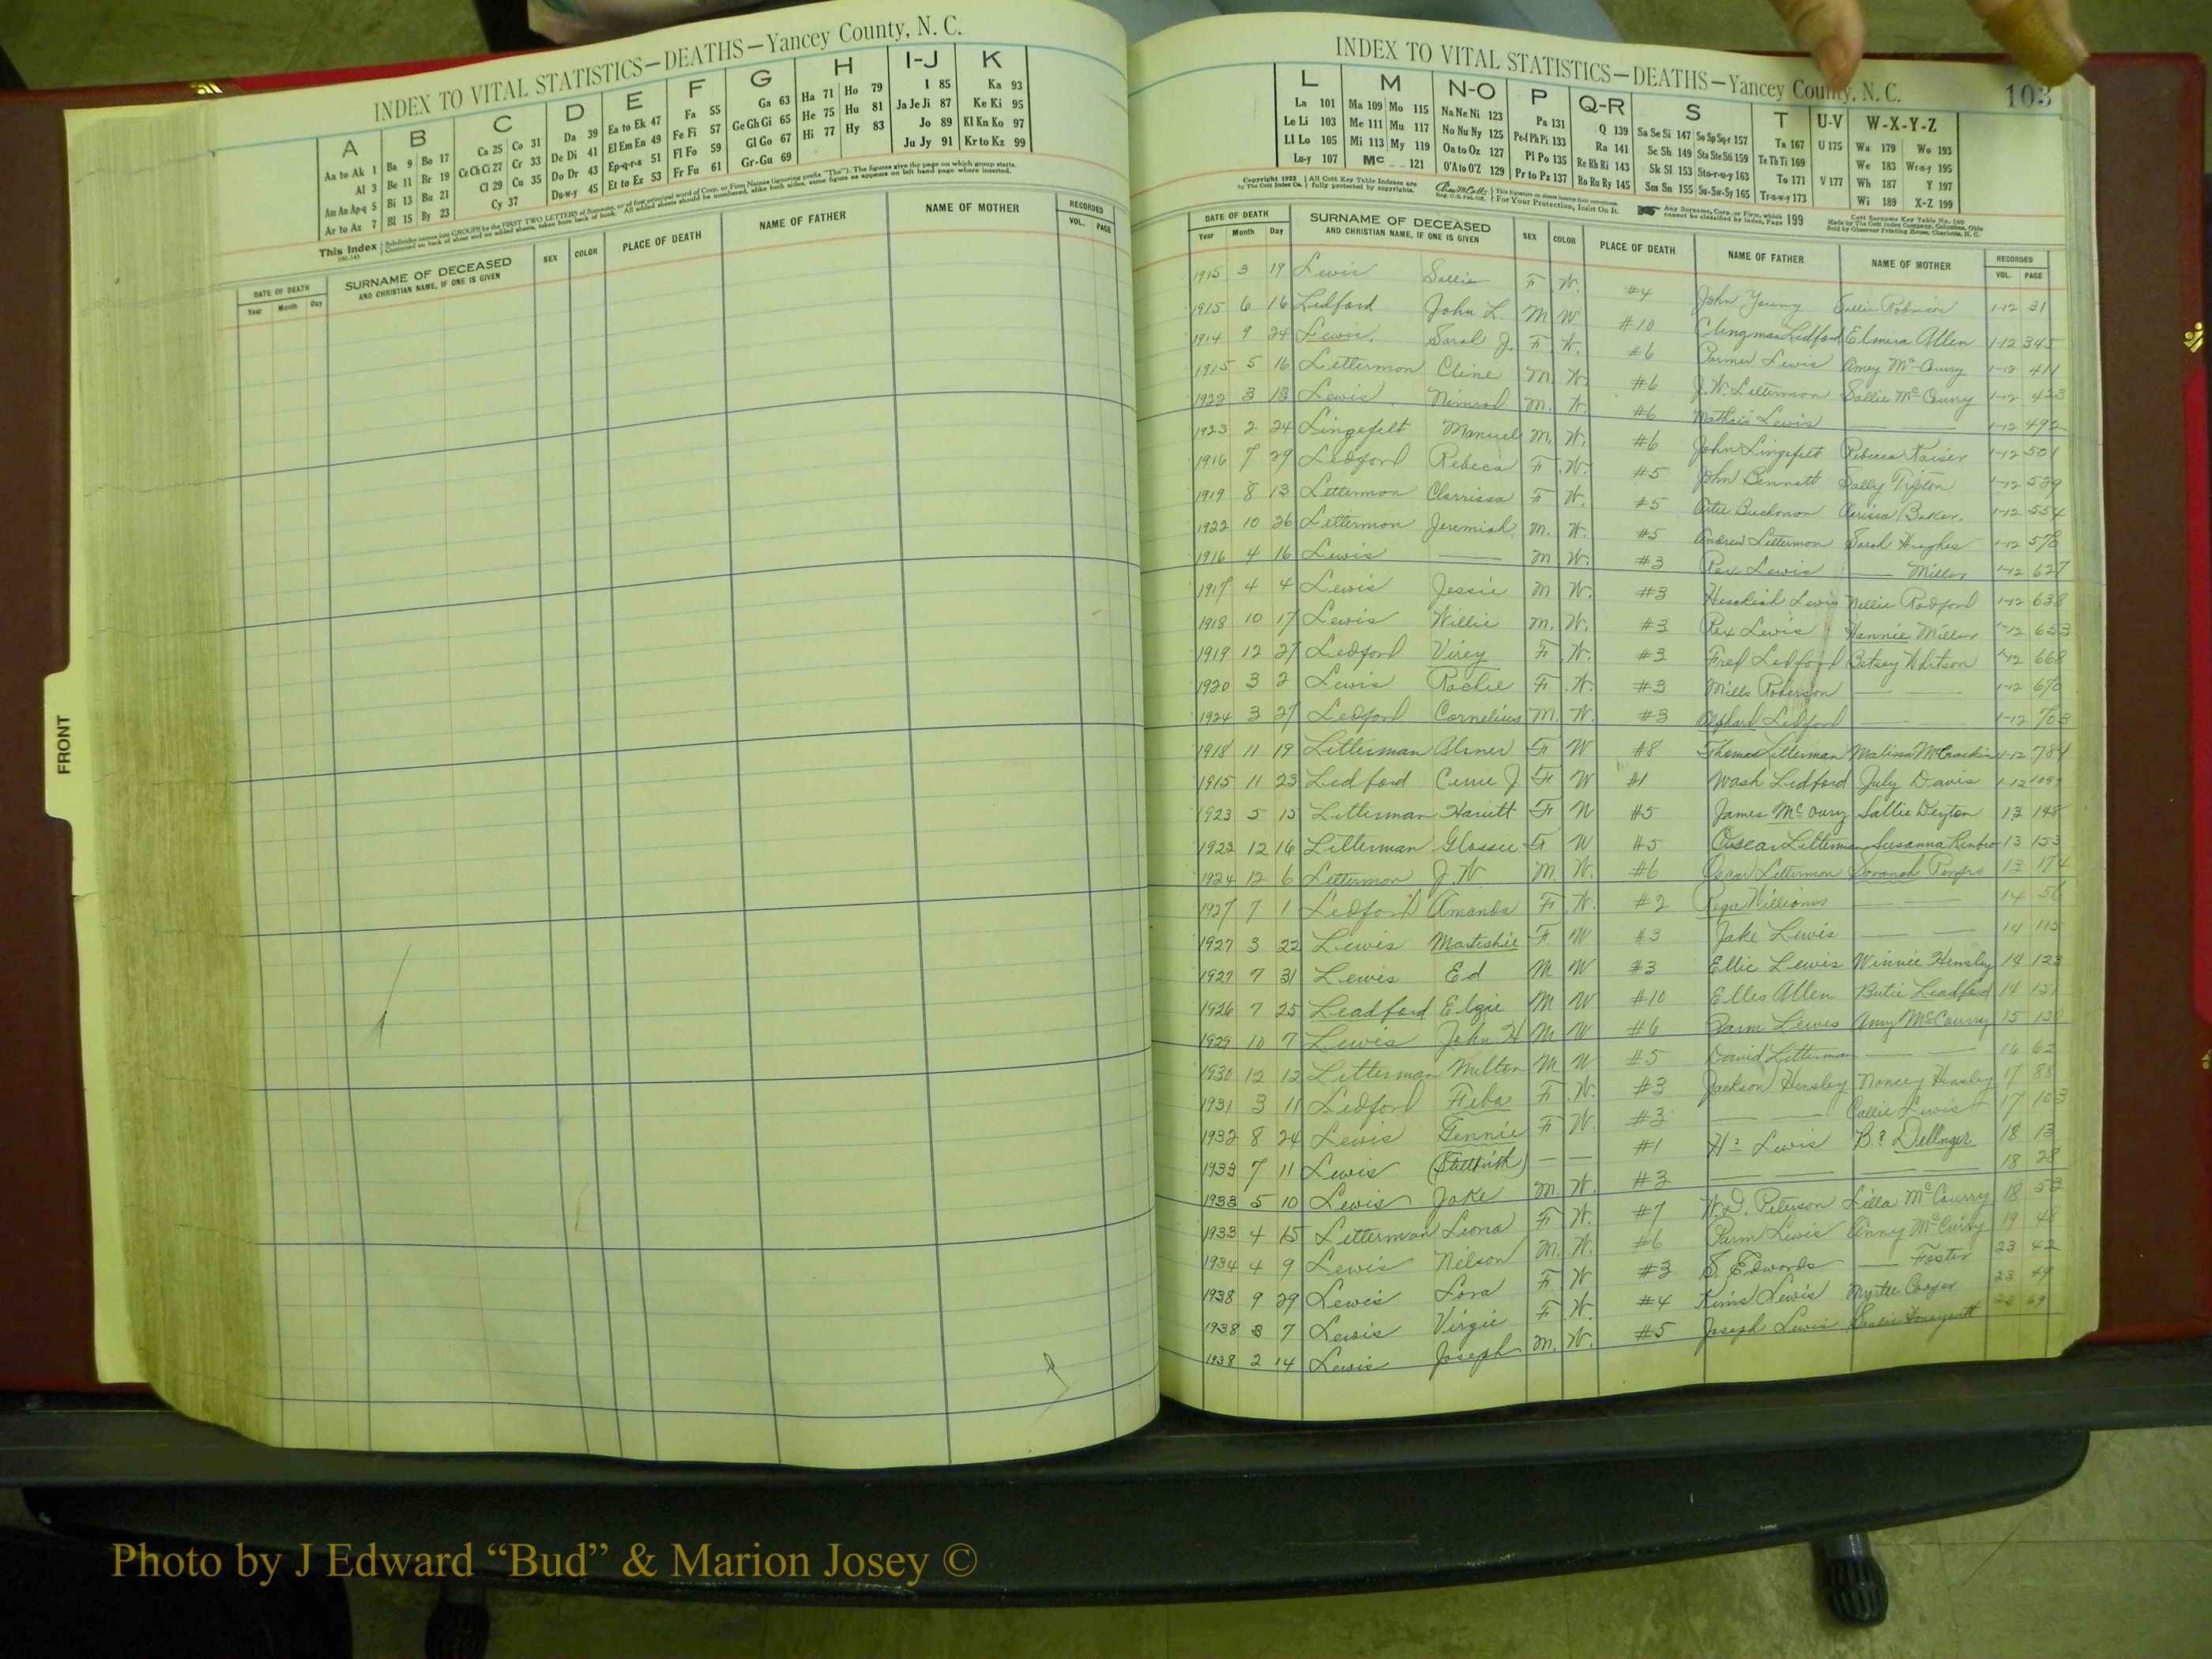 INDEX TO VITAL STATISTICS—DEATHS—Yancey County, N. C.
A B C D E F G H I-J K
Aa to Ak 1 Ba 9 Bo 17 Ca 25 Co 31 Da 39 Ea to Ek 47 Fa 55 Ga 63 Ha 71 Ho 79 I 85 Ka 93
Al 3 Be 11 Br 19 Ce Ch Ci 27 Cr 33 De Di 41 El Em En 49 Fe Fi 57 Ge Gh Gi 65 He 75 Hu 81 Ja Je Ji 87 Ke Ki 95
Am An Ap-q 5 Bi 13 Bu 21 Cl 29 Cu 35 Do Dr 43 Ep-q-r-s 51 Fl Fo 59 Gl Go 67 Hi 77 Hy 83 Jo 89 Kl Kn Ko 97
Ar to Az 7 Bl 15 By 23 Cy 37 Du-w-y 45 Et to Ez 53 Fr Fu 61 Gr-Gu 69 Ju Jy 91 Kr to Kz 99
This Index Subdivides names into GROUPS by the FIRST TWO LETTERS of Surname, or of first principal word of Corp. or Firm Names (ignoring prefix "The"). The figures give the page on which group starts.
Continued on back of sheet and on added sheets, taken from back of book. All added sheets should be numbered, alike both sides, same figure as appears on left hand page where inserted.
100-145
DATE OF DEATH SURNAME OF DECEASED AND CHRISTIAN NAME, IF ONE IS GIVEN SEX COLOR PLACE OF DEATH NAME OF FATHER NAME OF MOTHER RECORDED
Year Month Day VOL. PAGE
FRONT
INDEX TO VITAL STATISTICS—DEATHS—Yancey County, N. C. 103
L M N-O P Q-R S T U-V W-X-Y-Z
La 101 Ma 109 Mo 115 Na Ne Ni 123 Pa 131 Q 139 Sa Se Si 147 So Sp Sq-r 157 Ta 167 U 175 Wa 179 Wo 193
Le Li 103 Me 111 Mu 117 No Nu Ny 125 Pe-f Ph Pi 133 Ra 141 Sc Sh 149 Sta Ste Sti 159 Te Th Ti 169 We 183 Wr-u-y 195
Ll Lo 105 Mi 113 My 119 Oa to Oz 127 Pl Po 135 Re Rh Ri 143 Sk Sl 153 Sto-r-u-y 163 To 171 V 177 Wh 187 Y 197
Lu-y 107 Mc 121 O'A to O'Z 129 Pr to Pz 137 Ro Ru Ry 145 Sm Sn 155 Su-Sw-Sy 165 Tr-u-w-y 173 Wi 189 X-Z 199
Copyright 1922 by The Cott Index Co. All Cott Key Table Indexes are fully protected by copyrights. For Your Protection, Insist On It. Any Surname, Corp. or Firm, which cannot be classified by Index, Page 199 Cott Surname Key Table No. 100 Made by The Cott Index Company, Columbus, Ohio Sold by Observer Printing House, Charlotte, N. C.
DATE OF DEATH SURNAME OF DECEASED AND CHRISTIAN NAME, IF ONE IS GIVEN SEX COLOR PLACE OF DEATH NAME OF FATHER NAME OF MOTHER RECORDED
Year Month Day VOL. PAGE
1915 3 19 Lewis Sallie F W. #4 John Young Sallie Robinson 1-12 31
1915 6 16 Ledford John L. M W #10 Clingman Ledford Elmira Allen 1-12 345
1914 9 24 Lewis, Sarah J. F. W. #6 Parmer Lewis Amey McCurry 1-12 411
1915 5 16 Lettermon Cline M. W. #6 J.W. Lettermon Sallie McCurry 1-12 423
1922 3 13 Lewis Nimrod M. W. #6 Mathais Lewis — 1-12 492
1923 2 24 Lingefelt Manuel M. W. #6 John Lingefelt Rebecca Kaiser 1-12 501
1916 7 29 Ledford Rebeca F. W. #5 John Bennett Sally Tipton 1-12 529
1919 8 13 Lettermon Clarrissa F W. #5 Artie Buchonon Clarissa Baker. 1-12 554
1922 10 26 Lettermon Jeremiah M. W. #5 Andrew Lettermon Sarah Hughes 1-12 578
1916 4 16 Lewis — M W. #3 Rex Lewis — Miller 1-12 627
1917 4 4 Lewis Jessie M W. #3 Heackiah Lewis Nellie Radford 1-12 638
1918 10 17 Lewis Willie M. W. #3 Rex Lewis Hannie Miller 1-12 653
1919 12 27 Ledford Virey F W. #3 Fred Ledford Betsey Whitson 1-12 668
1920 3 2 Lewis Rachie F. W. #3 Mills Roberson — 1-12 670
1924 3 27 Ledford Cornelius M. W. #3 Ledford — 1-12 703
1918 11 19 Litterman Abner F W #8 Thomas Litterman Malissa McCrackin 1-12 784
1915 11 23 Ledford J F W #1 Wash Ledford July Davis 1-12
1923 5 15 Litterman Hariett F W #5 James McCury Sallie Deyton 13 148
1923 12 16 Litterman Glossie F W #5 Oscar Litterman Susanna Renfro 13 153
1924 12 6 Lettermon J.W M. W. #6 Oscar Lettermon Renfro 13 174
1927 7 1 Ledford Amanda F. W. #2 Williams — 14 56
1927 3 22 Lewis Marteshie F W #3 Jake Lewis — 14 115
1927 7 31 Lewis Ed M W #3 Ellic Lewis Winnie Hensley 14 123
1926 7 25 Leadford Elzie M W #10 Ellis Allen Butie Leadford 14 151
1929 10 7 Lewis John H M W #6 Parm Lewis Amy McCourry 15 130
1930 12 12 Litterman Milton M W #5 David Litterman — 16 62
1931 3 11 Ledford Heba F. W. #3 Jackson Hensley Nancy Hensley 17 88
1932 8 24 Lewis Fennie F W. #3 — Callie Lewis 17 103
1933 7 11 Lewis (Stillbirth) — — #1 H? Lewis B? Dellinger 18 13
1933 5 10 Lewis Jake M. W. #3 — — 18 28
1933 4 15 Letterman Leona F. W. #7 W.D. Peterson Lilla McCourry 18 53
1934 4 9 Lewis Nelson M. W. #6 Parm Lewis Anny McCurry 19 48
1938 9 29 Lewis Lora F W #3 S. Edwards — Foster 23 42
1938 3 7 Lewis Virgie F. W. #4 Lewis Myrtle Cooper 23 49
1938 2 14 Lewis Joseph M. W. #5 Joseph Lewis Honeycutt 23 69
Photo by J Edward “Bud” & Marion Josey ©